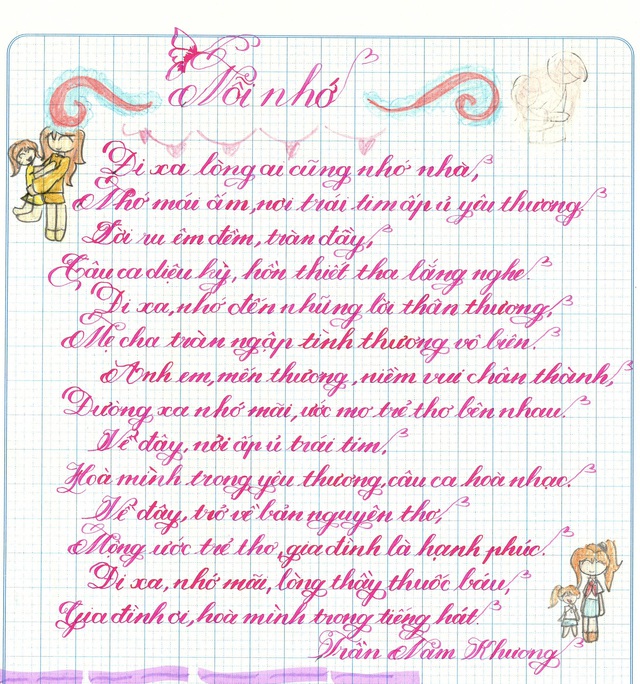 Nỗi nhớ
Đi xa lòng ai cũng nhớ nhà,
Nhớ mái ấm, nơi trái tim ấp ủ yêu thương.
Lời ru êm đềm, tràn đầy,
Câu ca diệu kỳ, hồn thiết tha lắng nghe.
Đi xa, nhớ đến những lời thân thương,
Mẹ cha tràn ngập tình thương vô biên.
Anh em, mến thương, niềm vui chân thành,
Đường xa nhớ mãi, ước mơ trẻ thơ bên nhau.
Về đây, nơi ấp ủ trái tim,
Hoà mình trong yêu thương, câu ca hoà nhạc.
Về đây, trở về bản nguyên thơ,
Mộng ước trẻ thơ, gia đình là hạnh phúc.
Đi xa, nhớ mãi, lòng thầy thuốc báu,
Gia đình ơi, hoà mình trong tiếng hát.
Trần Nam Khương